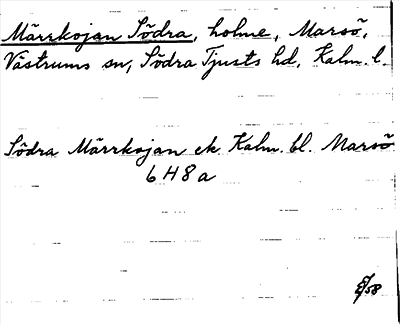 Märrkojan Södra, holme, Marsö,
Västrums sn, Södra Tjusts hd, Kalm. l.
Södra Märrkojan ek. Kalm. bl. Marsö
6 H 8 a